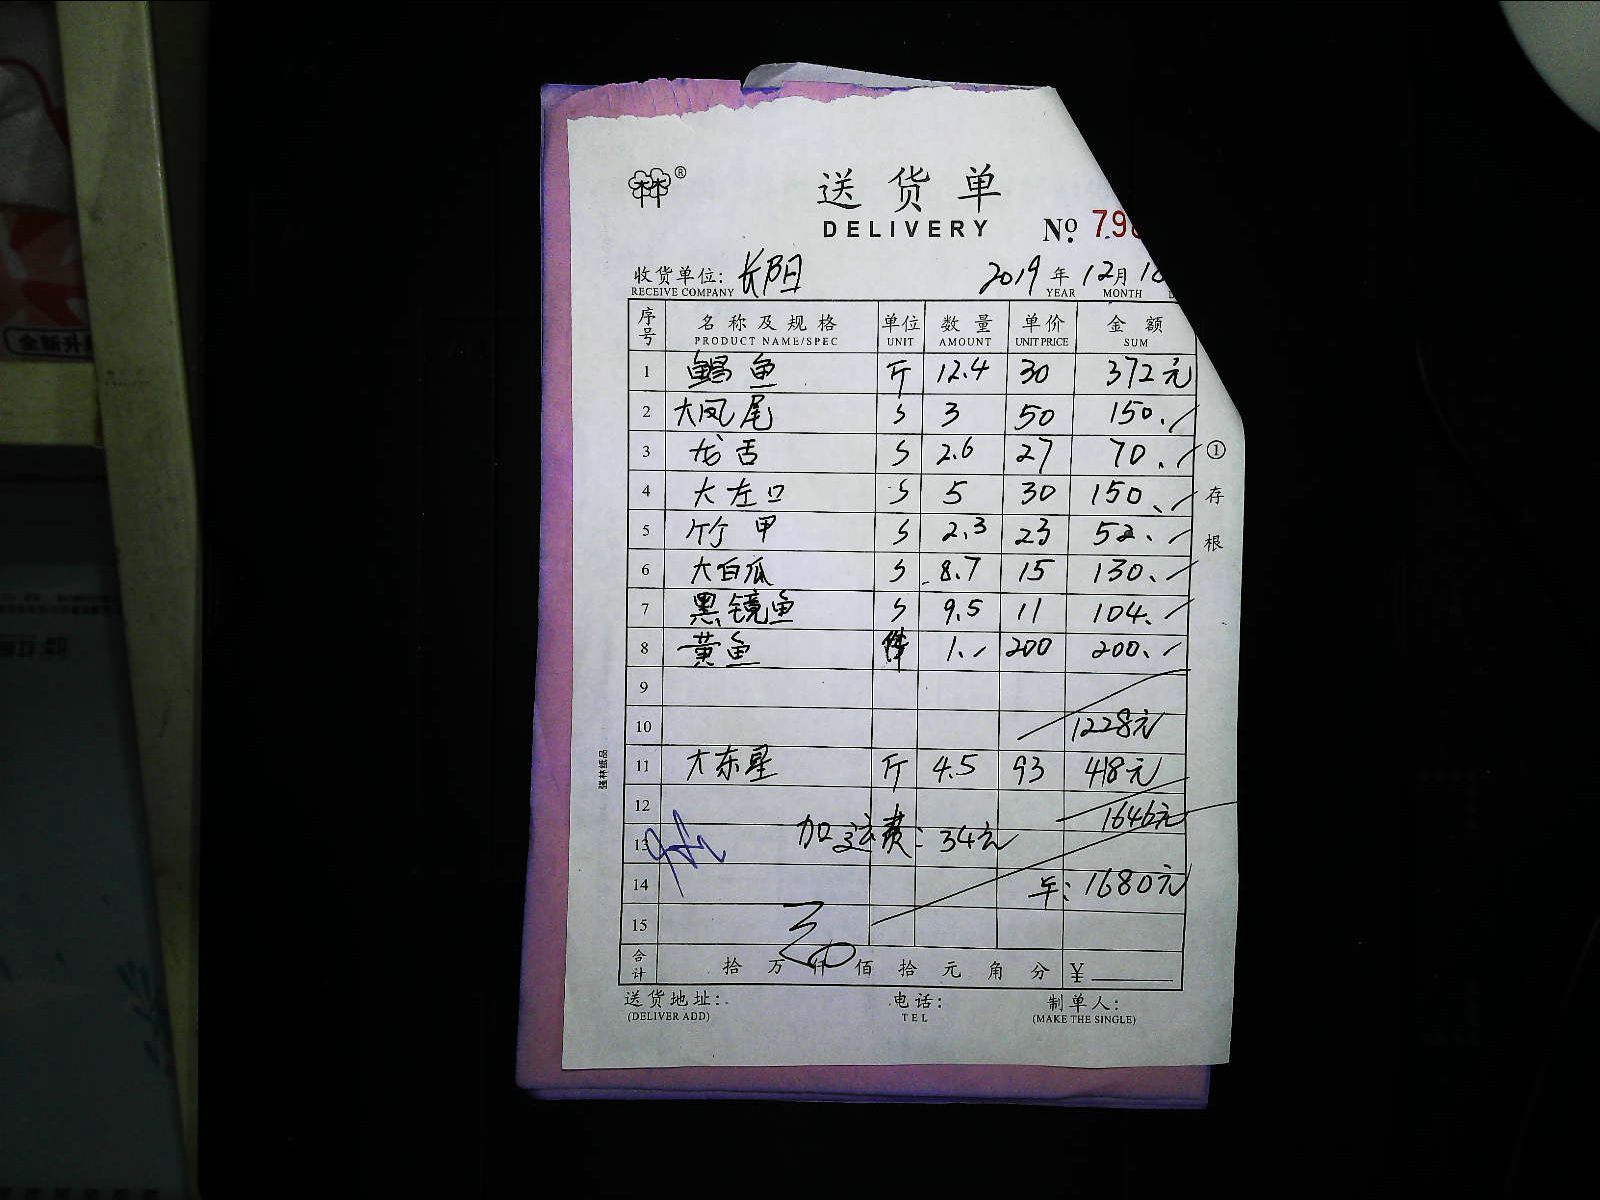 ®
送货单
DELIVERY
№ 79
收货单位: 长阳 2019年12月
RECEIVE COMPANY YEAR MONTH
序号 名称及规格 单位 数量 单价 金额
PRODUCT NAME/SPEC UNIT AMOUNT UNIT PRICE SUM
1 鲳鱼 斤 12.4 30 372元
2 大凤尾 S 3 50 150.
3 龙舌 S 2.6 27 70.
4 大左口 S 5 30 150.
5 竹甲 S 2.3 23 52.
6 大白瓜 S 8.7 15 130.
7 黑镜鱼 S 9.5 11 104.
8 黄鱼 件 1. 200 200.
9
10 1228元
11 大东星 斤 4.5 93 418元
12 1646元
13 加运费: 34元
14 1680元
15
合计 拾万仟佰拾元角分 ¥
送货地址: 电话: 制单人:
(DELIVER ADD) TEL (MAKE THE SINGLE)
①存根
强林纸品